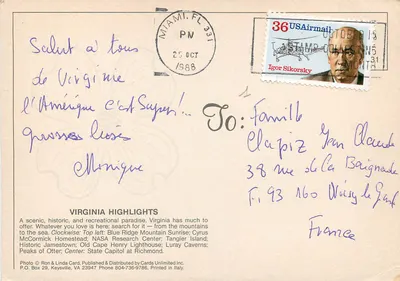 MIAMI, FL 331
PM
26 OCT
1988
36 USAirmail
Igor Sikorsky
Salut à tous
de Virginie
l'Amérique c'est Super!...
grosses bises
Monique
To:
Famille
Clapiz Jean Claude
38 rue de la Baignade
F. 93 160 Noisy le Grand
France
VIRGINIA HIGHLIGHTS
A scenic, historic, and recreational paradise, Virginia has much to
offer. Whatever you love is here; search for it — from the mountains
to the sea. Clockwise: Top left: Blue Ridge Mountain Sunrise; Cyrus
McCormick Homestead; NASA Research Center; Tangier Island;
Historic Jamestown; Old Cape Henry Lighthouse; Luray Caverns;
Peaks of Otter; Center: State Capitol at Richmond.
Photo © Ron & Linda Card, Published & Distributed by Cards Unlimited Inc.
P.O. Box 29, Keysville, VA 23947 Phone 804-736-9786. Printed in Italy.